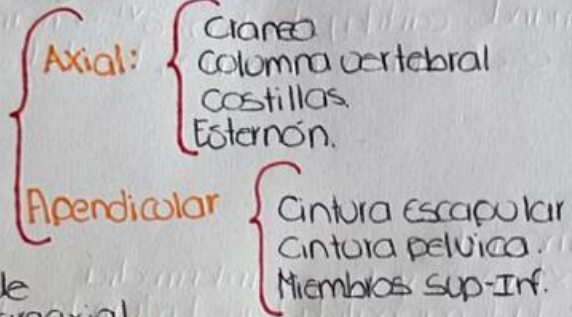 Axial:
Craneo
Columna vertebral
Costillas.
Esternón.
Apendicular
Cintura Escapular
Cintura pelvica.
Miembros Sup-Inf.
de